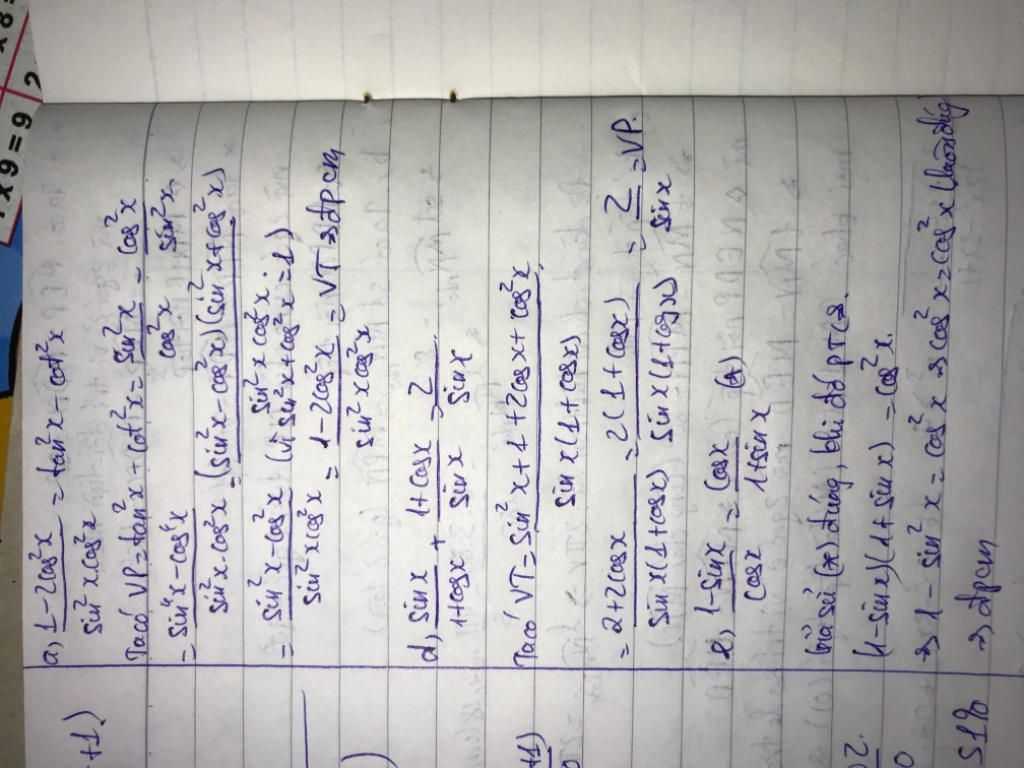 a, (1-2cos²x)/(sin²x cos²x) = tan²x - cot²x
Ta có VP = tan²x - cot²x = sin²x/cos²x - cos²x/sin²x
= (sin⁴x - cos⁴x)/(sin²x.cos²x) = (sin²x - cos²x)(sin²x + cos²x)/(sin²x cos²x)
= (sin²x - cos²x)/(sin²x cos²x) (vì sin²x + cos²x = 1)
= (1-2cos²x)/(sin²x cos²x) = VT => đpcm
d, sinx/(1+cosx) + (1+cosx)/sinx = 2/sinx
Ta có VT = (sin²x + 1 + 2cosx + cos²x)/(sinx(1+cosx))
= (2+2cosx)/(sinx(1+cosx)) = 2(1+cosx)/(sinx(1+cosx)) = 2/sinx = VP.
e, (1-sinx)/cosx = cosx/(1+sinx) (*)
Giả sử (*) đúng, khi đó pt (*)
(1-sinx)(1+sinx) = cos²x
=> 1 - sin²x = cos²x => cos²x = cos²x (luôn đúng)
=> đpcm
+1)
+1)
51%
x9=9